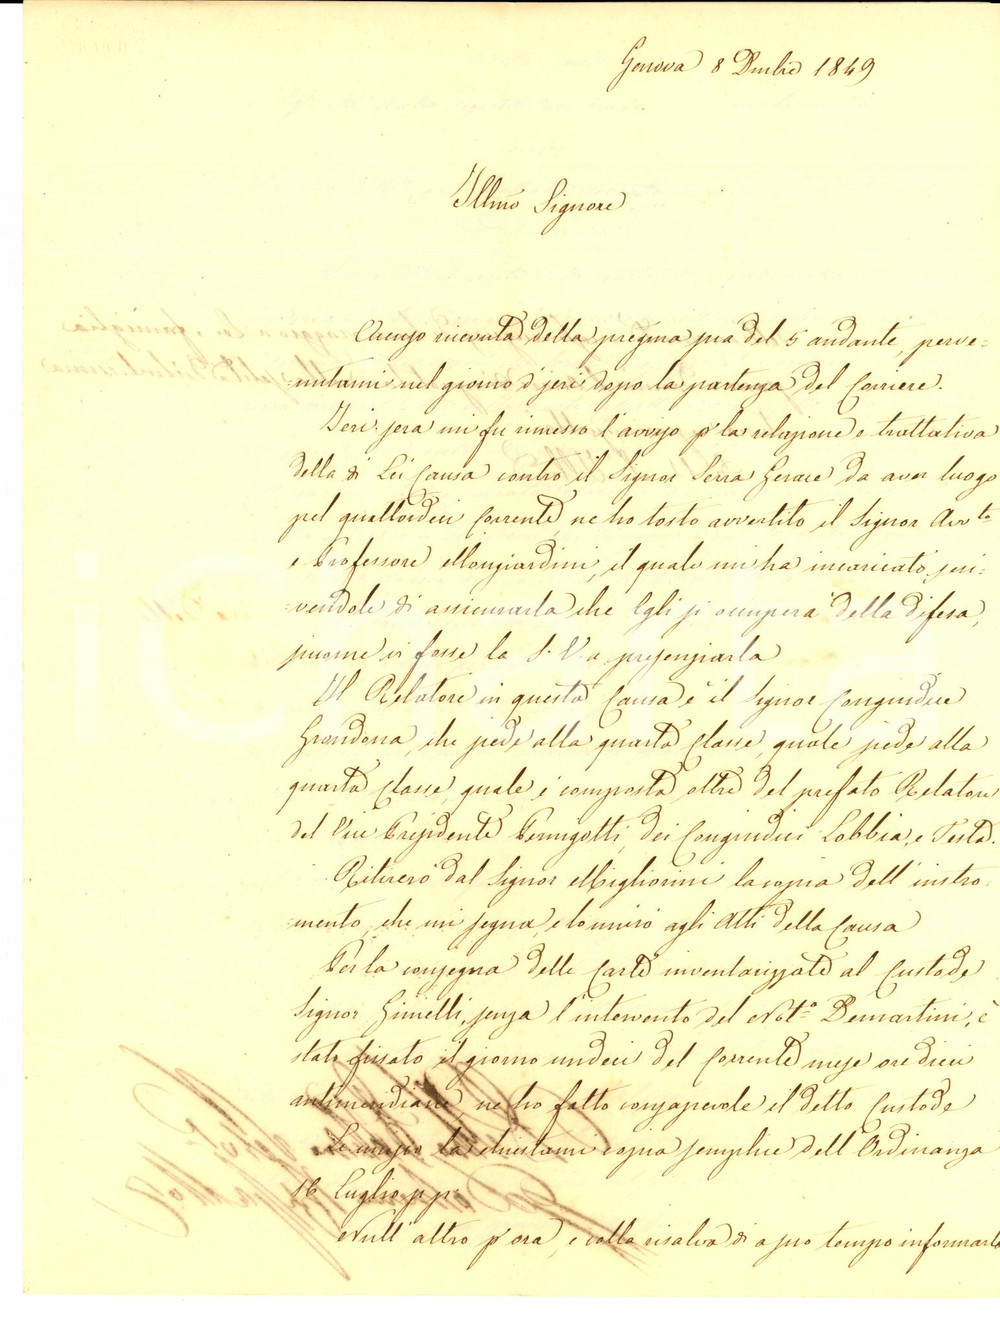 Genova 8 Dmbre 1849
Illmo Signore
Accuso ricevuta della pregma sua del 5 andante, perve-
-nutami nel giorno d'jeri dopo la partenza del Corriere.
Jeri sera mi fu rimesso l'avviso p' la relazione e trattativa
della di Lei Causa contro il Signor Serra Gerace da aver luogo
pel quattordici Corrente, ne ho tosto avvertito il Signor Avvto
e Professore Mongiardini, il quale mi ha incaricato, scri-
-vendole di assicurarla che Egli si occuperà della difesa,
siccome vi fosse la S. V. a presenziarla
Il Relatore in questa Causa è il Signor Congiudice
Grondona, che siede alla quarta Classe, quale siede alla
quarta Classe, quale è composta oltre del prefato Relatore
del Vice Presidente Perugotti, dei Congiudici Lobbia, e Testa.
Ritirerò dal Signor Migliorini la copia dell' instro-
-mento, che mi segna, e lo unirò agli Atti della Causa
Per la consegna delle Carte inventarizzate al Custode
Signor Gimelli, senza l'intervento del Noto Demartini, è
stato fissato il giorno undeci del Corrente mese ore dieci
antimeridiane, ne ho fatto consapevole il detto Custode
Le unisco la chiestami copia semplice dell' Ordinanza
16 Luglio p. p.
Null' altro p' ora, e colla risalva di a suo tempo informarla